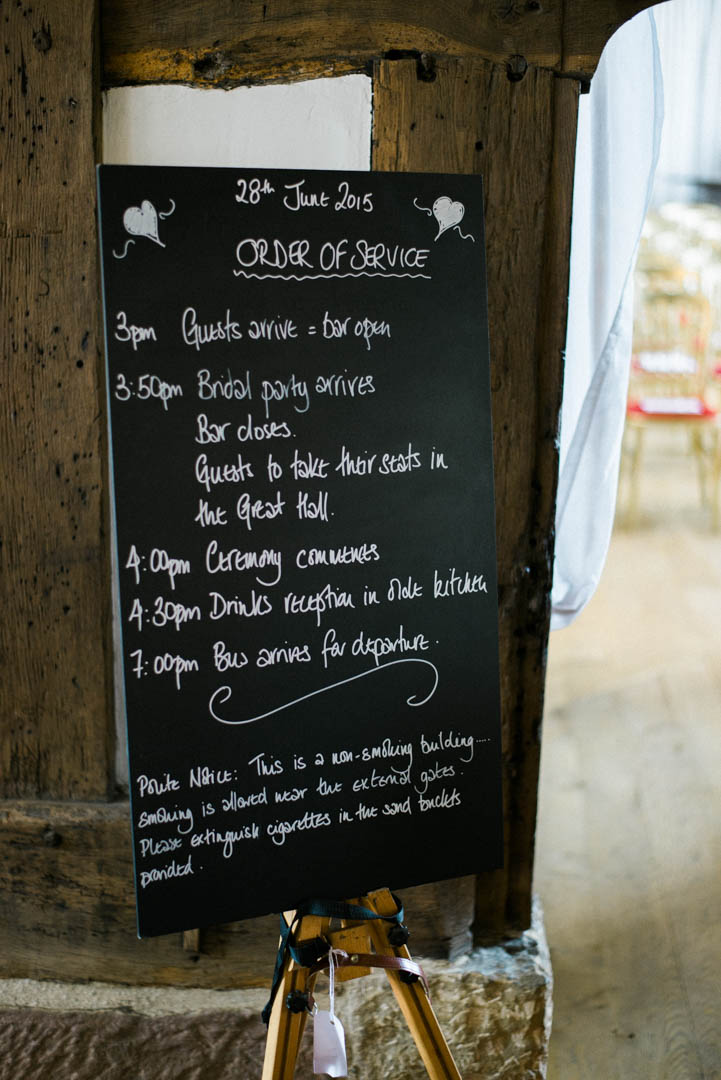 28th June 2015
ORDER OF SERVICE
3pm Guests arrive = bar open
3:50pm Bridal party arrives
Bar closes.
Guests to take their seats in
the Great Hall.
4:00pm Ceremony commences
4:30pm Drinks reception in olde kitchen
7:00pm Bus arrives for departure.
Polite Notice: This is a non-smoking building.....
smoking is allowed near the external gates.
Please extinguish cigarettes in the sand buckets
provided.